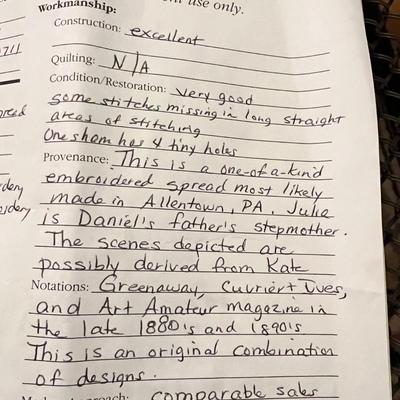 use only.
Workmanship:
Construction: excellent
Quilting: N/A
Condition/Restoration: very good
some stitches missing in long straight
areas of stitching
One sham has 4 tiny holes
Provenance: This is a one-of a-kind
embroidered spread most likely
made in Allentown, PA. Julia
is Daniel's father's stepmother.
The scenes depicted are
possibly derived from Kate
Notations: Greenaway, Currier + Ives,
and Art Amateur magazine in
the late 1880's and 1890's
This is an original combination
of designs.
comparable sales